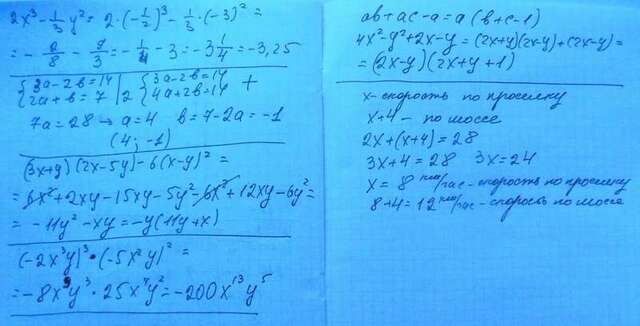 2x³ - 1/3 y² = 2·(-1/2)³ - 1/3·(-3)² =
= -2/8 - 9/3 = -1/4 - 3 = -3 1/4 = -3,25
{3a-2b=14 | {3a-2b=14 +
{2a+b=7 |2 {4a+2b=14
7a=28 → a=4 b=7-2a=-1
(4; -1)
(3x+y)(2x-5y)-6(x-y)² =
= 6x²+2xy-15xy-5y²-6x²+12xy-6y²=
= -11y²-xy=-y(11y+x)
(-2x³y)³·(-5x²y)² =
= -8x⁹y³·25x⁷y²=-200x¹³y⁵
ab+ac-a=a(b+c-1)
4x²-y²+2x-y=(2x+y)(2x-y)+(2x-y)=
=(2x-y)(2x+y+1)
x-скорость по проселку
x+4- по шоссе
2x+(x+4)=28
3x+4=28 3x=24
x=8 км/час-скорость по проселку
8+4=12 км/час-скорость по шоссе